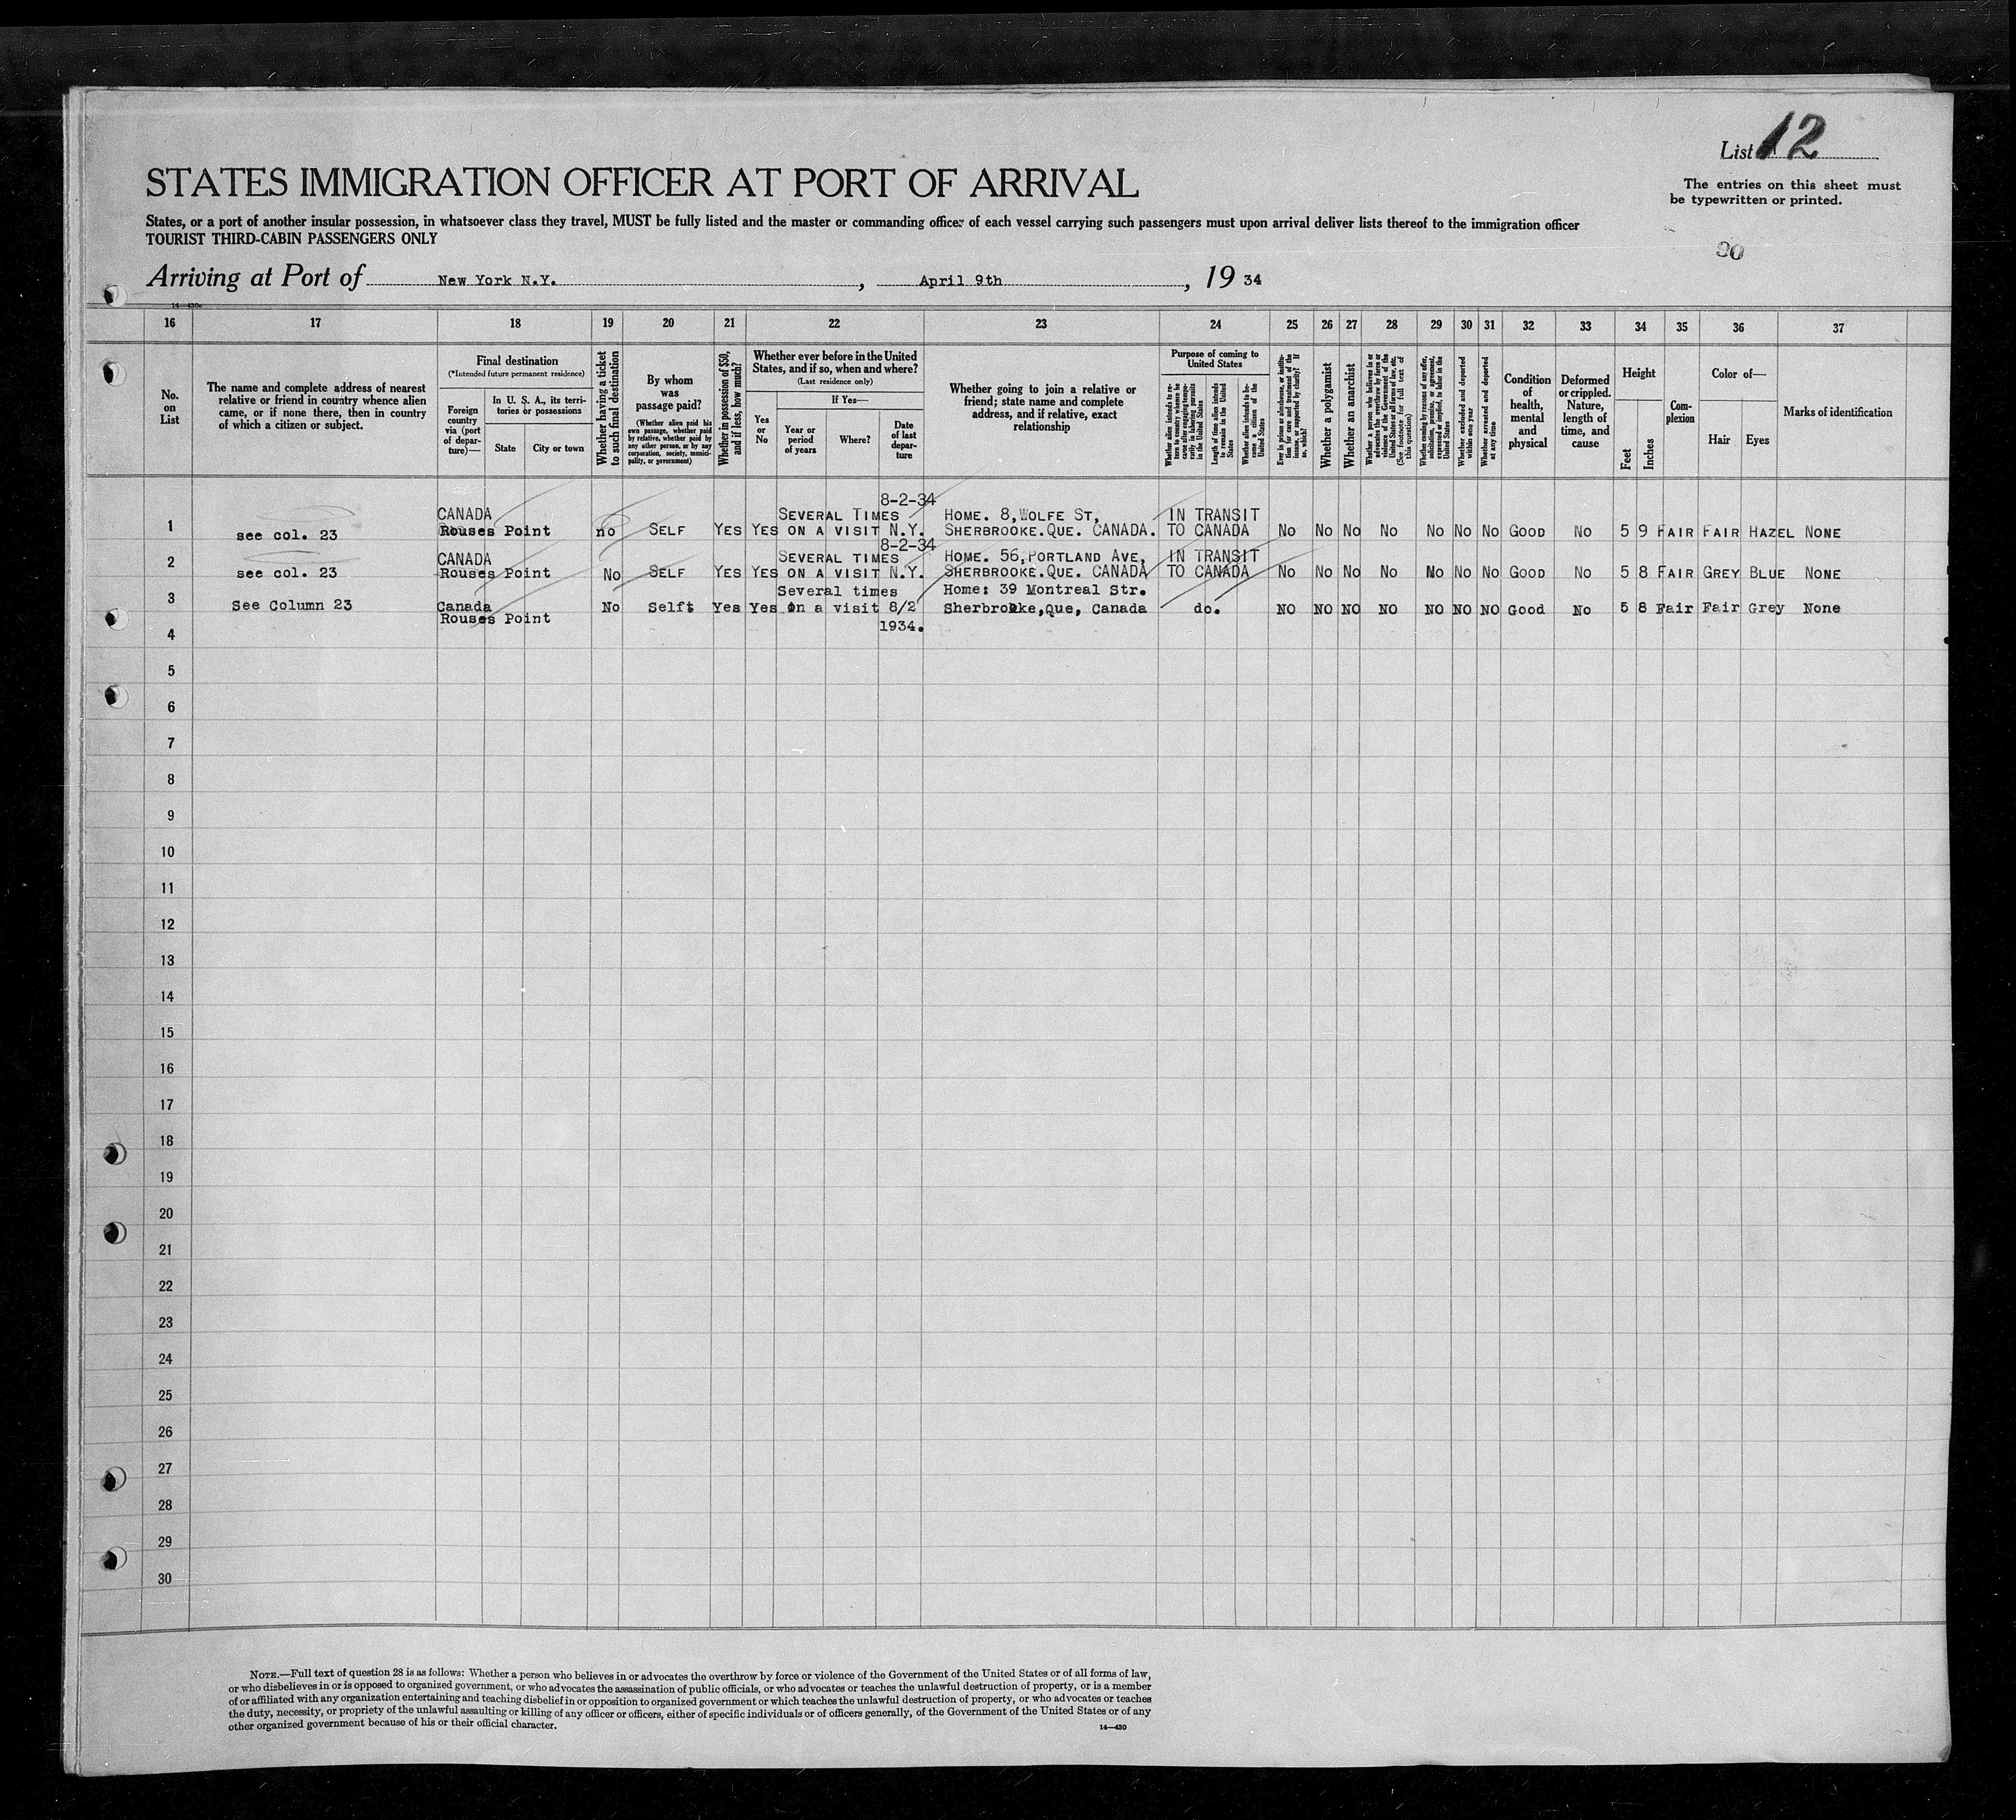 List 12
STATES IMMIGRATION OFFICER AT PORT OF ARRIVAL
The entries on this sheet must
be typewritten or printed.
States, or a port of another insular possession, in whatsoever class they travel, MUST be fully listed and the master or commanding officer of each vessel carrying such passengers must upon arrival deliver lists thereof to the immigration officer
TOURIST THIRD-CABIN PASSENGERS ONLY
Arriving at Port of New York N.Y. , April 9th , 19 34
16 17 18 19 20 21 22 23 24 25 26 27 28 29 30 31 32 33 34 35 36 37
No.
on
List
The name and complete address of nearest
relative or friend in country whence alien
came, or if none there, then in country
of which a citizen or subject.
Final destination
(*Intended future permanent residence)
Foreign
country
via (port
of depar-
ture)—
In U. S. A., its terri-
tories or possessions
State
City or town
Whether having a ticket
to such final destination
By whom
was
passage paid?
(Whether alien paid his
own passage, whether paid
by relative, whether paid by
any other person, or by any
corporation, society, munici-
pality, or government)
Whether in possession of $50,
and if less, how much?
Whether ever before in the United
States, and if so, when and where?
(Last residence only)
Yes
or
No
If Yes—
Year or
period
of years
Where?
Date
of last
depar-
ture
Whether going to join a relative or
friend; state name and complete
address, and if relative, exact
relationship
Purpose of coming to
United States
Whether alien intends to re-
turn to country whence he
came after engaging tempo-
rarily in laboring pursuits
in the United States
Length of time alien intends
to remain in the United
States
Whether alien intends to be-
come a citizen of the
United States
Ever in prison or almshouse, or institu-
tion for care and treatment of the
insane, or supported by charity? If
so, which?
Whether a polygamist
Whether an anarchist
Whether a person who believes in or
advocates the overthrow by force or
violence of the Government of the
United States or all forms of law, etc.
(See footnote for full text of
this question)
Whether coming by reasons of any offer,
solicitation, promise, or agreement,
expressed or implied, to labor in the
United States
Whether excluded and deported
within one year
Whether arrested and deported
at any time
Condition
of
health,
mental
and
physical
Deformed
or crippled.
Nature,
length of
time, and
cause
Height
Feet
Inches
Com-
plexion
Color of—
Hair
Eyes
Marks of identification
8-2-34
CANADA SEVERAL TIMES HOME. 8, WOLFE ST, IN TRANSIT
1 see col. 23 Rouses Point no SELF YES YES ON A VISIT N.Y. SHERBROOKE.QUE. CANADA. TO CANADA No No No No No No No GOOD No 5 9 FAIR FAIR HAZEL NONE
8-2-34
CANADA SEVERAL TIMES HOME. 56, PORTLAND AVE, IN TRANSIT
2 see col. 23 Rouses Point No SELF YES YES ON A VISIT N.Y. SHERBROOKE.QUE. CANADA TO CANADA No No No No No No No GOOD No 5 8 FAIR GREY BLUE NONE
Several times Home: 39 Montreal Str.
3 See Column 23 Canada No Selft Yes Yes on a visit 8/2 Sherbrooke,Que, Canada do. NO NO NO NO NO NO NO Good No 5 8 Fair Fair Grey None
Rouses Point
4 1934.
5
6
7
8
9
10
11
12
13
14
15
16
17
18
19
20
21
22
23
24
25
26
27
28
29
30
NOTE.—Full text of question 28 is as follows: Whether a person who believes in or advocates the overthrow by force or violence of the Government of the United States or of all forms of law,
or who disbelieves in or is opposed to organized government, or who advocates the assassination of public officials, or who advocates or teaches the unlawful destruction of property, or is a member
of or affiliated with any organization entertaining and teaching disbelief in or opposition to organized government or which teaches the unlawful destruction of property, or who advocates or teaches
the duty, necessity, or propriety of the unlawful assaulting or killing of any officer or officers, either of specific individuals or of officers generally, of the Government of the United States or of any
other organized government because of his or their official character.
14—430